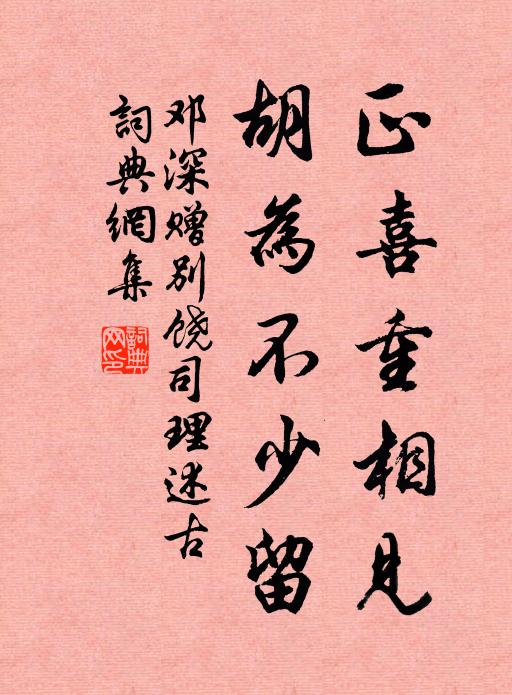 正喜重相見
胡為不少留
邓深赠别饶司理述古
詞典網集
詞典网印